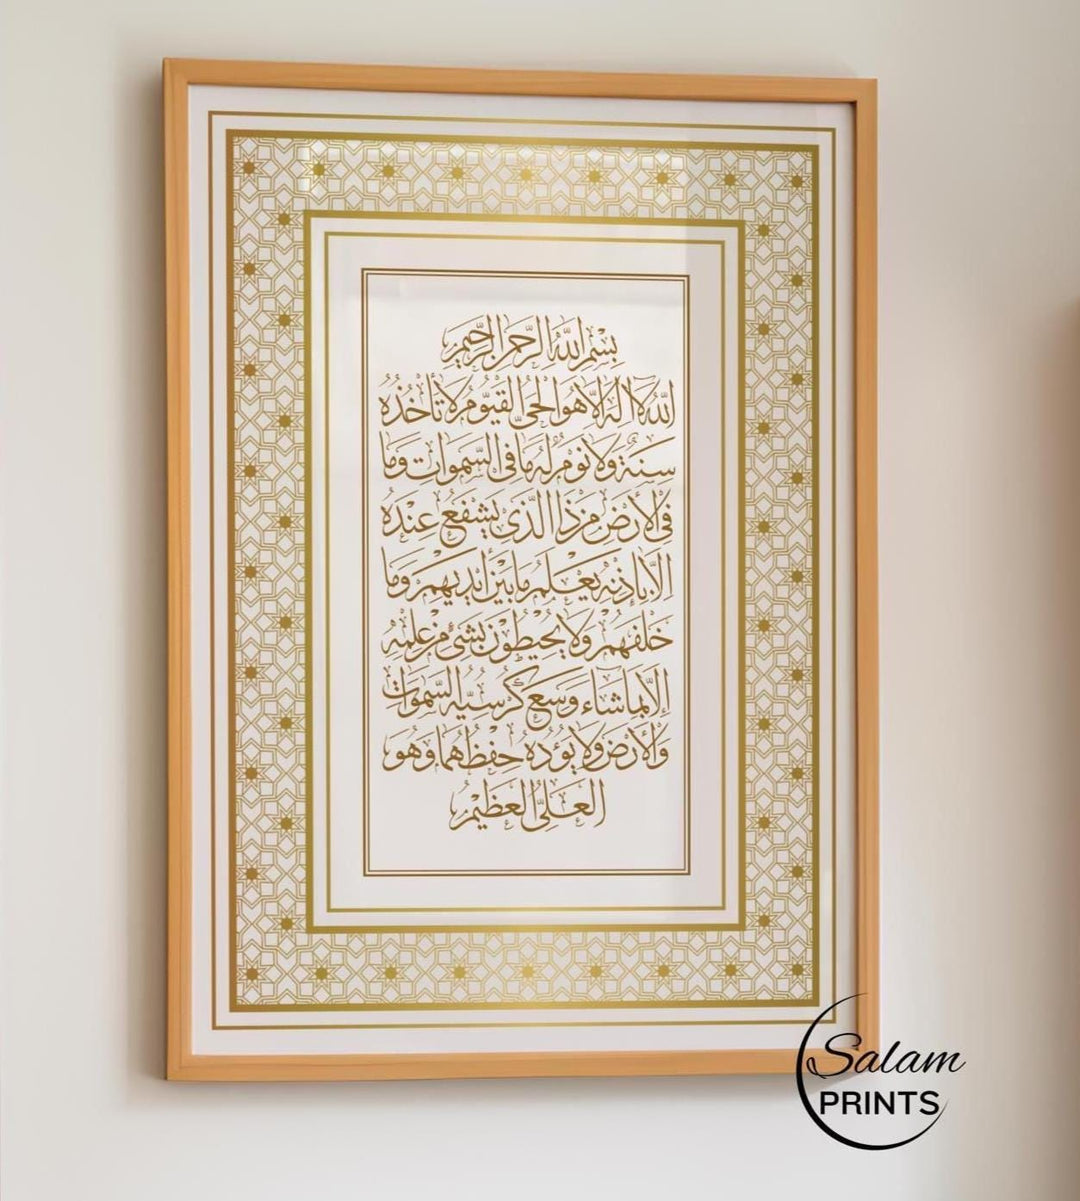 بِسْمِ اللَّهِ الرَّحْمٰنِ الرَّحِيمِ
اللَّهُ لَا إِلَهَ إِلَّا هُوَ الْحَيُّ الْقَيُّومُ لَا تَأْخُذُهُ
سِنَةٌ وَلَا نَوْمٌ لَهُ مَا فِي السَّمَوَاتِ وَمَا
فِي الْأَرْضِ مَنْ ذَا الَّذِي يَشْفَعُ عِنْدَهُ
إِلَّا بِإِذْنِهِ يَعْلَمُ مَا بَيْنَ أَيْدِيهِمْ وَمَا
خَلْفَهُمْ وَلَا يُحِيطُونَ بِشَيْءٍ مِنْ عِلْمِهِ
إِلَّا بِمَا شَاءَ وَسِعَ كُرْسِيُّهُ السَّمَوَاتِ
وَالْأَرْضَ وَلَا يَؤُدُهُ حِفْظُهُمَا وَهُوَ
الْعَلِيُّ الْعَظِيمُ
Salam
PRINTS